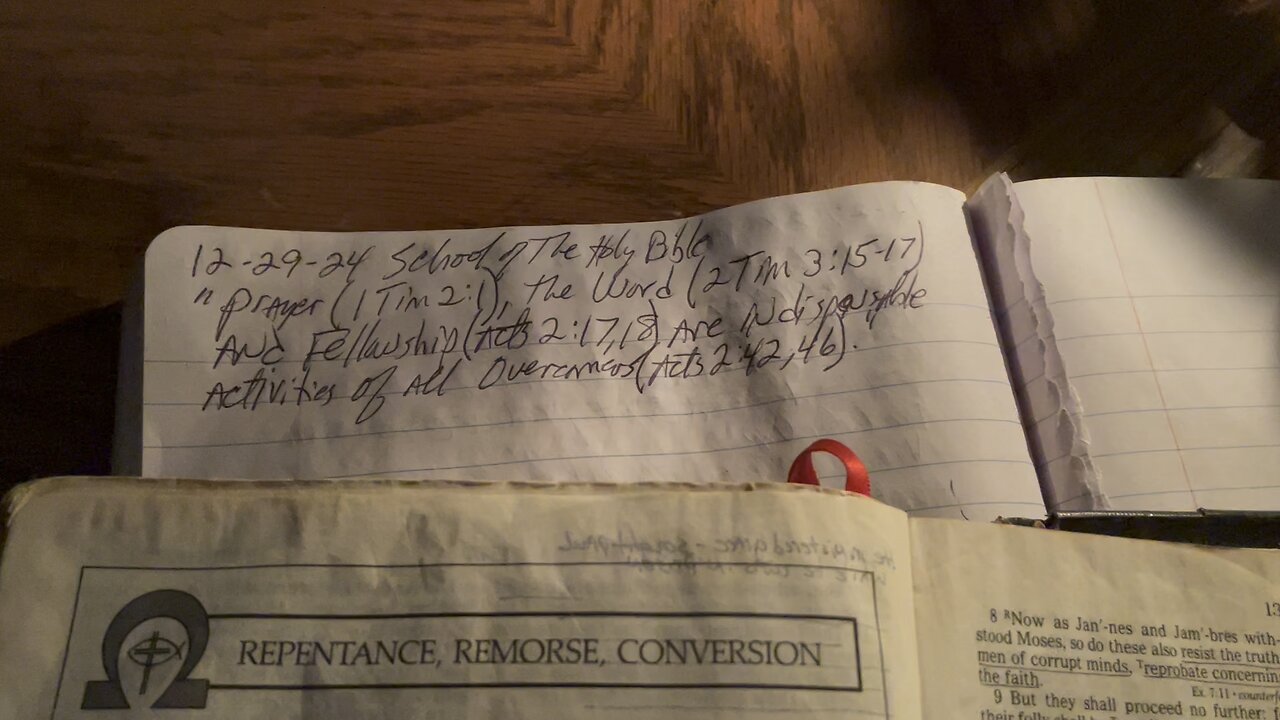 12-29-24 School of The Holy Bible
" Prayer (1 Tim 2:1), the Word (2 Tim 3:15-17)
And Fellowship (Acts 2:17,18) Are Indispensible
Activities of All Overcomers (Acts 2:42,46).
REPENTANCE, REMORSE, CONVERSION
13
8 ᴿNow as Jan'-nes and Jam'-bres with-
stood Moses, so do these also resist the truth
men of corrupt minds, ᵀreprobate concernin
the faith.
Ex. 7:11 • counterf
9 But they shall proceed no further: f
their folly shall